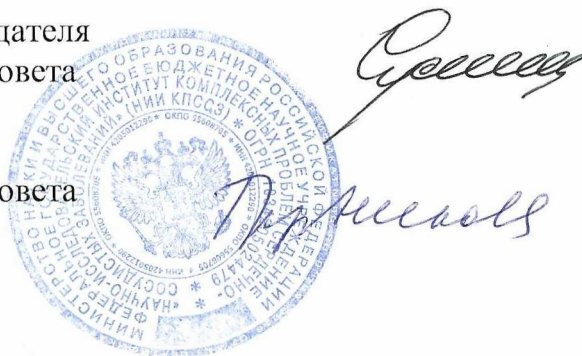 дателя
овета
овета
МИНИСТЕРСТВО НАУКИ И ВЫСШЕГО ОБРАЗОВАНИЯ РОССИЙСКОЙ ФЕДЕРАЦИИ
ФЕДЕРАЛЬНОЕ ГОСУДАРСТВЕННОЕ БЮДЖЕТНОЕ НАУЧНОЕ УЧРЕЖДЕНИЕ
«НАУЧНО-ИССЛЕДОВАТЕЛЬСКИЙ ИНСТИТУТ КОМПЛЕКСНЫХ ПРОБЛЕМ СЕРДЕЧНО-
СОСУДИСТЫХ ЗАБОЛЕВАНИЙ» (НИИ КПССЗ) * ОГРН
* ИНН 4205012290 * ОКПО 55608705